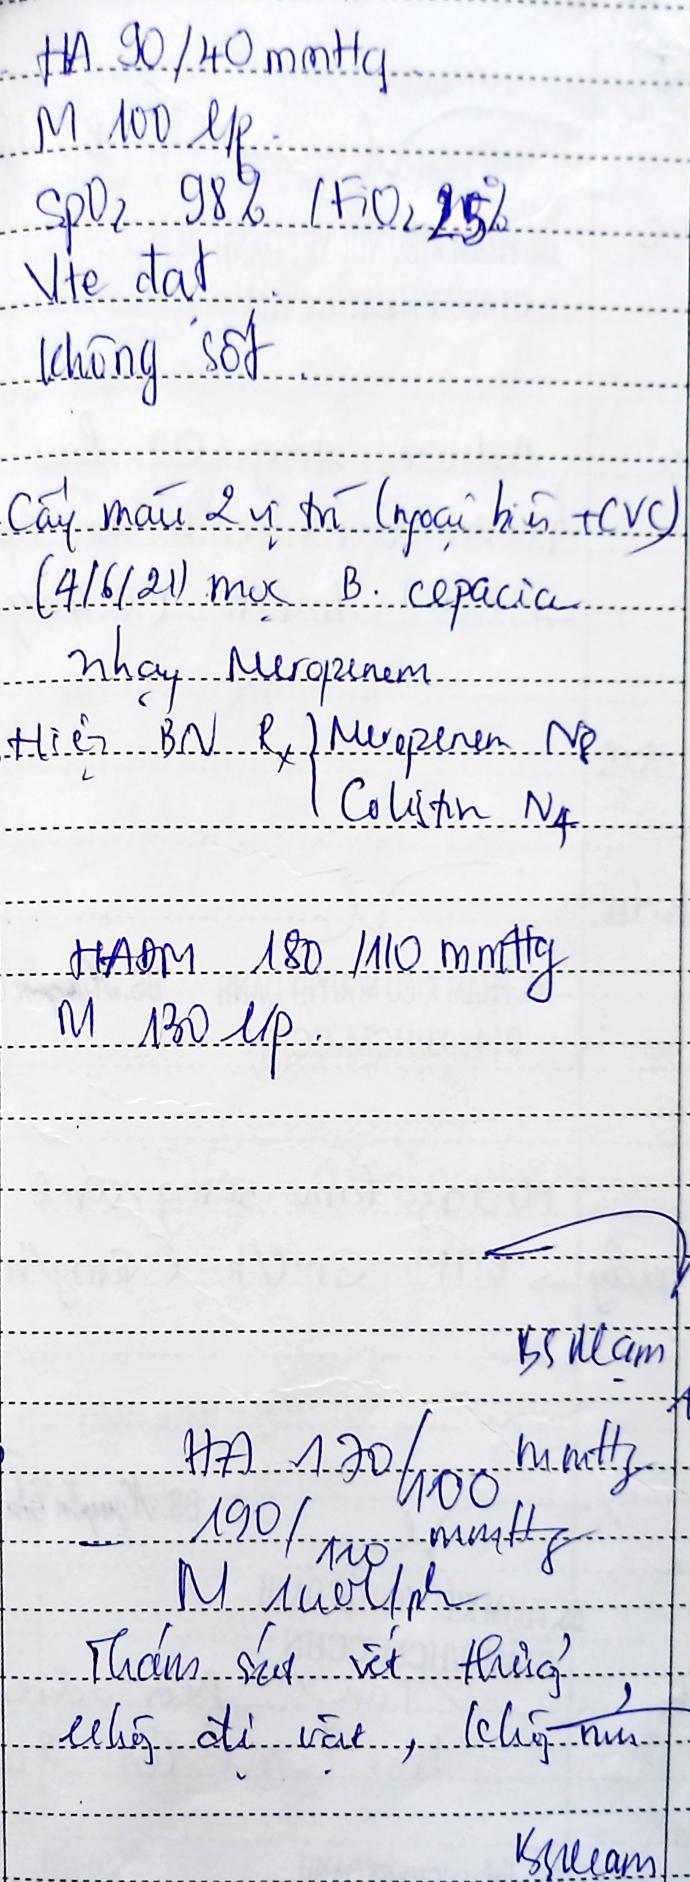 HA 90/40 mmHg
M 100 l/p.
SpO2 98% (FiO2 25%
Vte đạt
Không sốt.
Cấy máu 2 vị trí (ngoại biên + CVC)
(4/6/21) mọc B. cepacia
nhạy Meropenem
Hiện BN Rx } Meropenem N8
Colistin N4
HAĐM 180/110 mmHg
M 130 l/p.
BS Nam
HA 170/100 mmHg
190/110 mmHg
M 140 l/ph
Thám sát vết thương
không dị vật, không mủ
BS Nam